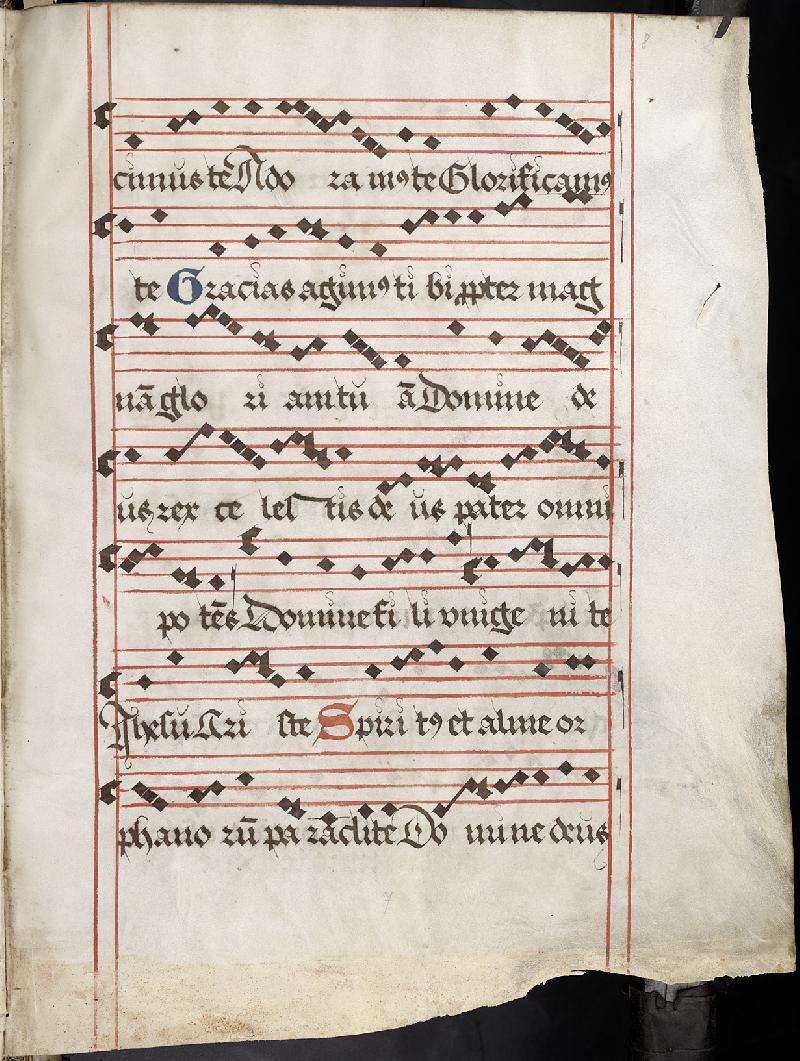 cimus te Ado ra mꝰ te Glorificamꝰ
te Gracias agimꝰ ti bi ꝓpter mag
nā glo ri am tu ā Domine de
us rex ce les tis de us pater omni
po tēs Domine fi li vnige ni te
Jhesu Xri ste Spiri tꝰ et alme or
phano rū pa raclite Do mine deus
7